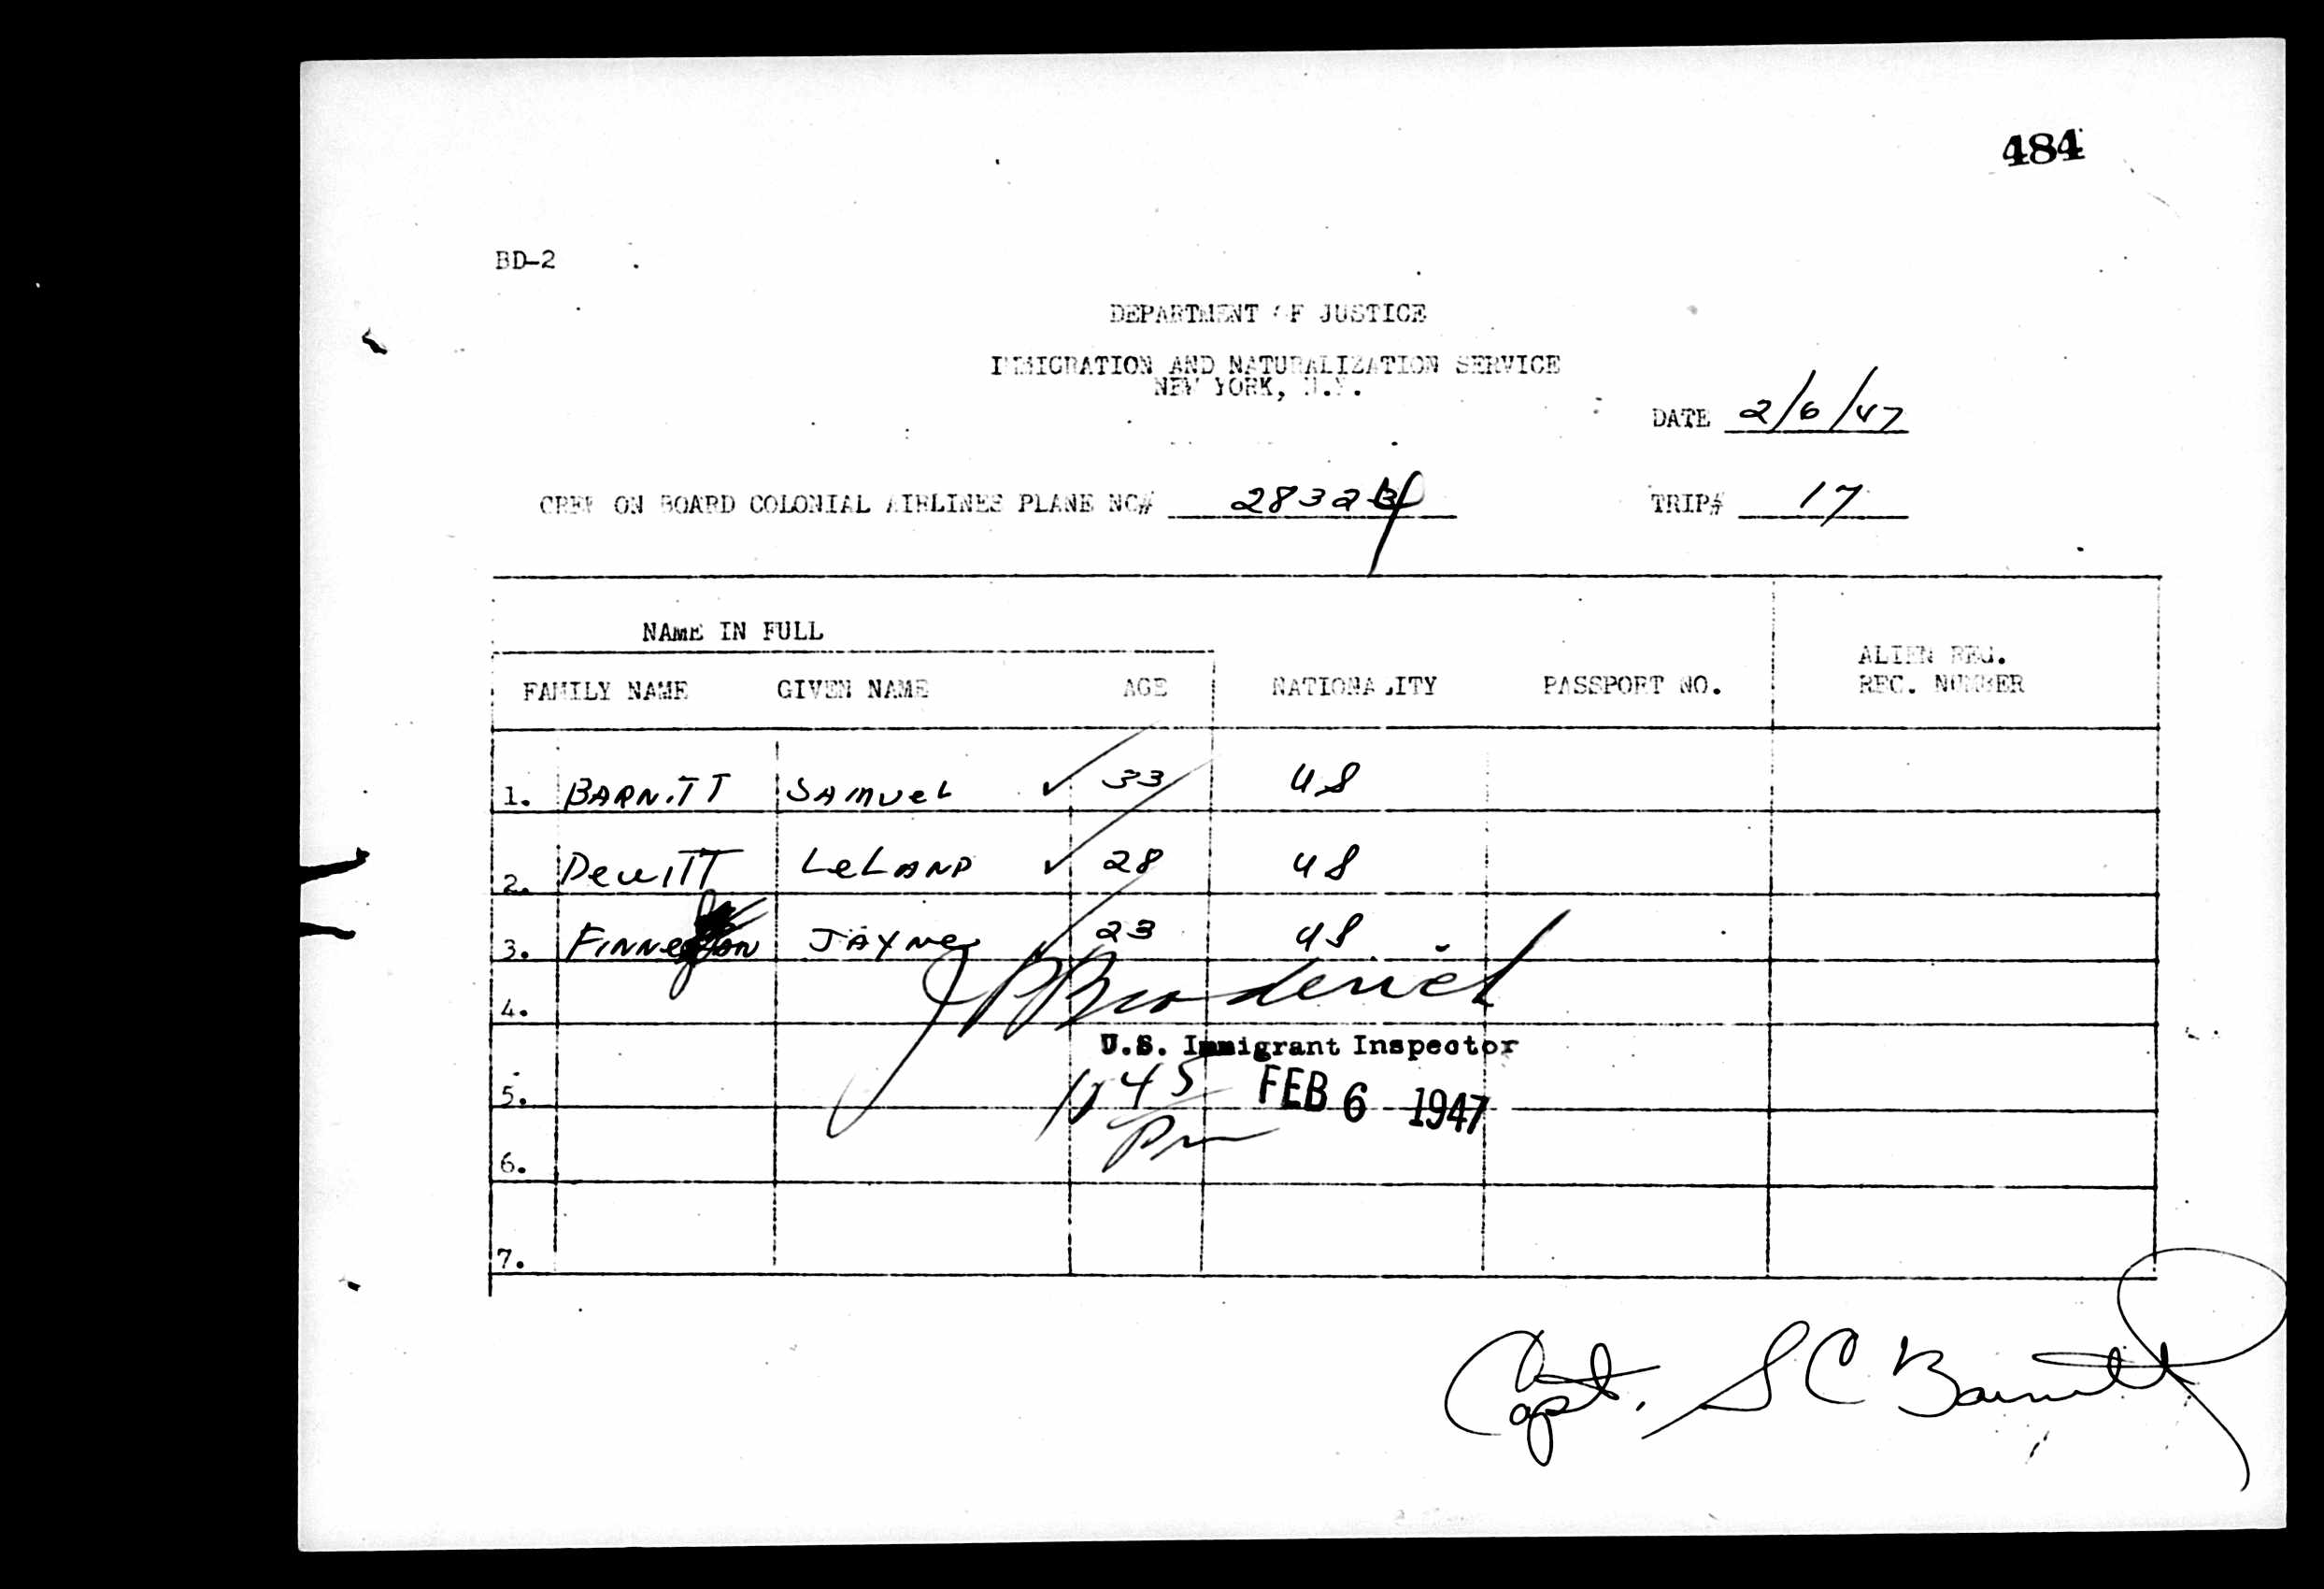 484
BD-2
DEPARTMENT OF JUSTICE
IMMIGRATION AND NATURALIZATION SERVICE
NEW YORK, N.Y.
DATE 2/6/47
CREW ON BOARD COLONIAL AIRLINES PLANE NC# TRIP# 17
NAME IN FULL
ALIEN REG.
FAMILY NAME GIVEN NAME AGE NATIONALITY PASSPORT NO. REC. NUMBER
1. BARNITT SAMUEL 33 US
2. DEWITT LELAND 28 US
3. FINNEGAN JAYNE 23 US
4. Broderick
U.S. Immigrant Inspector
5. 45 FEB 6 1947
Pm
6.
7.
Capt. S C Barnitt